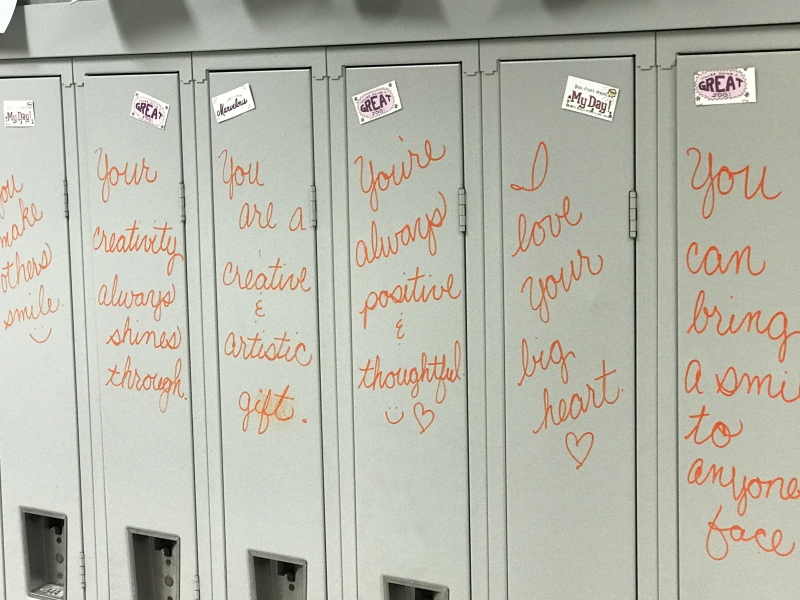 My Day!
you
make
others
smile.
GREAT
JOB!
Your
creativity
always
shines
through.
Marvelous
You
are a
creative
&
artistic
gift.
GREAT
JOB!
You're
always
positive
&
thoughtful
You Just Made
My Day!
I
love
your
big
heart.
GREAT
JOB!
You
can
bring
a smi
to
anyone
face